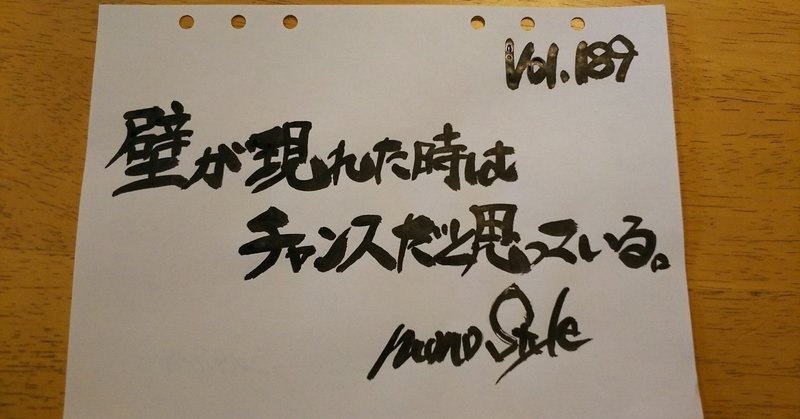 Vol.189
壁が現れた時は
チャンスだと思っている。
mono Style